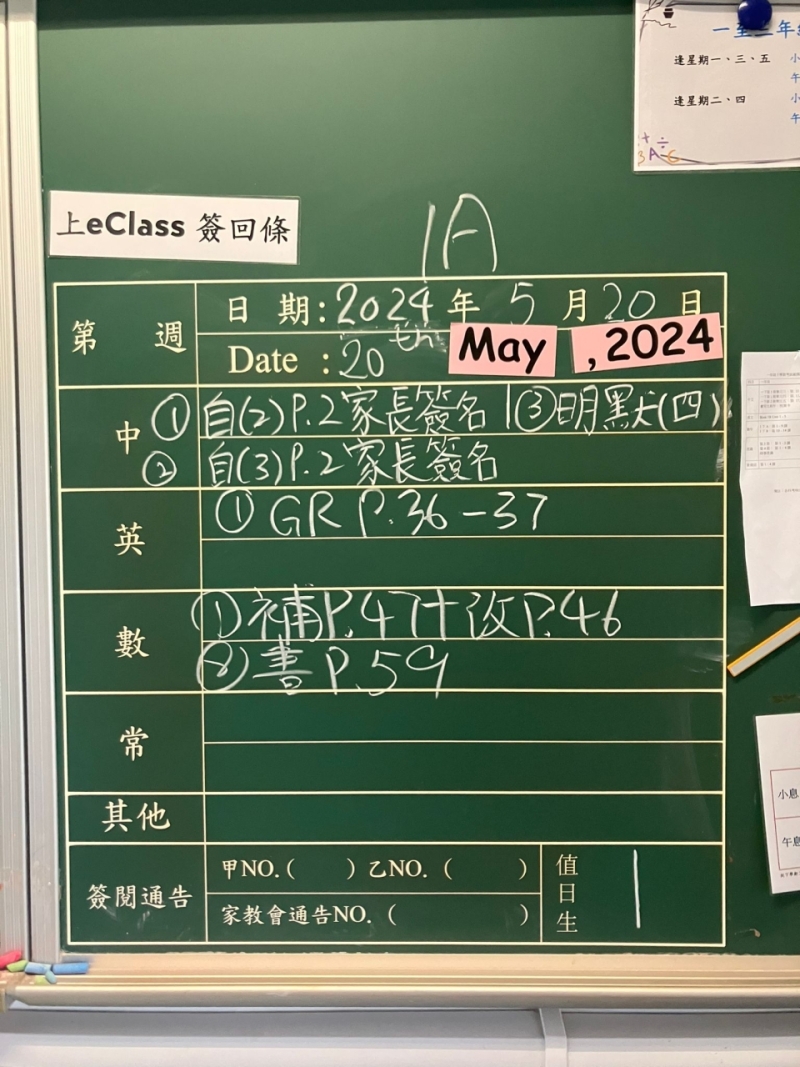 一至二年
逢星期一、三、五 小
午
逢星期二、四 小
午
上eClass 簽回條
1A
第 週
日 期:2024 年 5 月 20 日
Date :20th May ,2024
中
① 自(2) P.2 家長簽名 ③ 明默(四)
② 自(3) P.2 家長簽名
英
① GR P.36-37
數
① 補P.47+改P.46
② 書 P.59
常
其他
簽閱通告
甲NO.( ) 乙NO. ( )
家教會通告NO. ( )
值日生 1
小息
午息